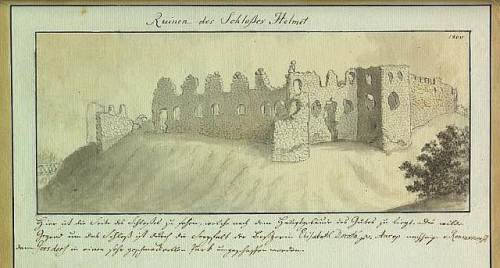 Ruinen des Schloßes Helmet
1800
Hier ist die Seite des Schloßes zu sehen, welche nach dem Hauptgebäude des Gutes zu liegt. Die wilde
Gegend um das Schloß ist durch die Sorgfalt der Besitzerin Elisabeth Dorothea von Anrep
dem in einen sehr geschmackvollen Park umgeschaffen worden.